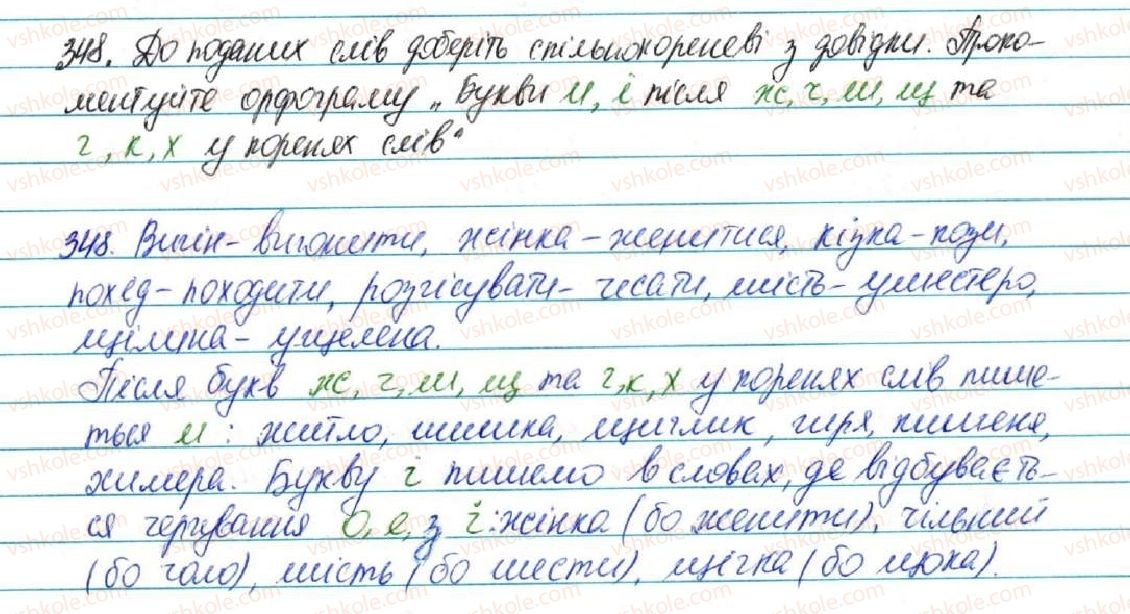 348. До поданих слів доберіть спільнокореневі з довідки. Проко-
ментуйте орфограму „Букви и, і після ж, ч, ш, щ та
г, к, х у коренях слів"
348. Вигін - вигонити, жінка - женитися, кізка - кози,
похід - походити, розчісувати - чесати, шість - ушестеро,
щілина - ущелена.
Після букв ж, ч, ш, щ та г, к, х у коренях слів пише-
ться и: житло, шишка, щиглик, гиря, кишеня,
химера. Букву і пишемо в словах, де відбуваєть-
ся чергування о, е, з і: жінка (бо женити), чільний
(бо чоло), шість (бо шести), щічка (бо щока).
vshkole.com